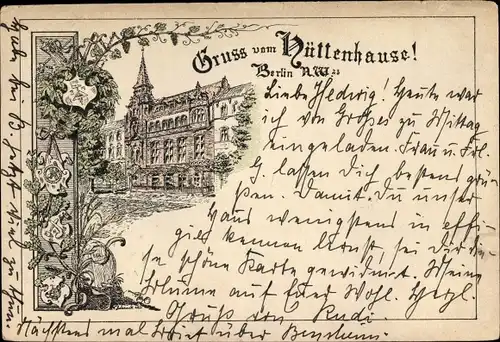 Gruss vom Hüttenhause!
Berlin N.W.
Liebe Hedwig! Heute war
ich von Großes zu Mittag
eingeladen. Frau u. Frl.
G. lassen Dich bestens grü-
ßen. Damit Du unser
Haus wenigstens in effi-
gie kennen lernst, sei Dir die-
se schöne Karte gewidmet. Meine
Blume auf Euer Wohl. Herzl.
Gruß von Rudi.
Nächstens mal Brief über